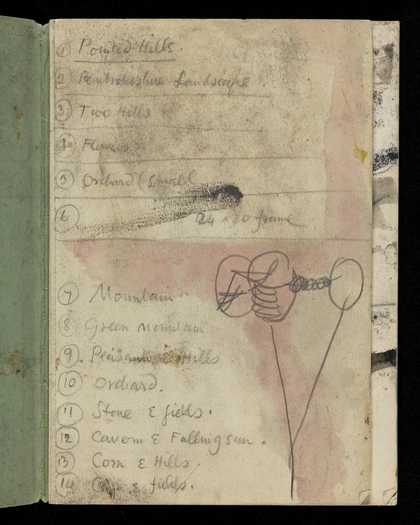 1 Pointed Hills.
2 Pembrokeshire Landscape
3 Two Hills
4
5 Orchard (small
6 24 × 20 frame
7 Mountain
8 Green mountain
9. & Hills
10 Orchard.
11 Stone & fields.
12 Cavern & Falling sun.
13 Corn & Hills.
14 & fields.